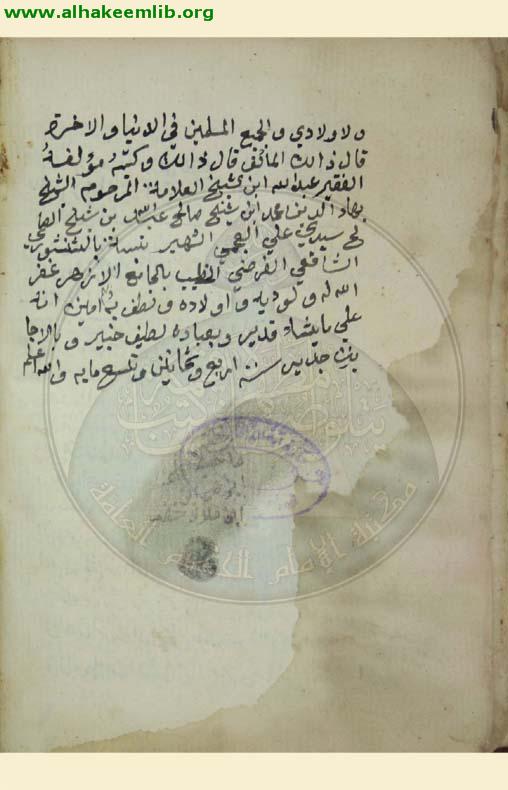 www.alhakeemlib.org
ولاولادي والجميع المسلمين في الدنيا والاخرة
قال ذالك المؤلف قال ذالك وكتبه مؤلفهُ
الفقير عبد الله ابن شيخ العلامة المرحوم الشيخ
بهاو الدين محمد ابن شيخ صالح عبد الله بن شيخ الصالح
سيدي علي العجمي الشهير نسبه بالشنشوري
الشافعي الفرضي الخطيب بالجامع الازهر غفر
الله له ولوديه واولاده ولطف به امين انه
علي مايشاء قدير وبعباده لطيف خبير وبالاجا
بت جدير سنة اربع وثمانين وتسع مايه والله اعلم
مكتبة الإمام الحكيم العامة